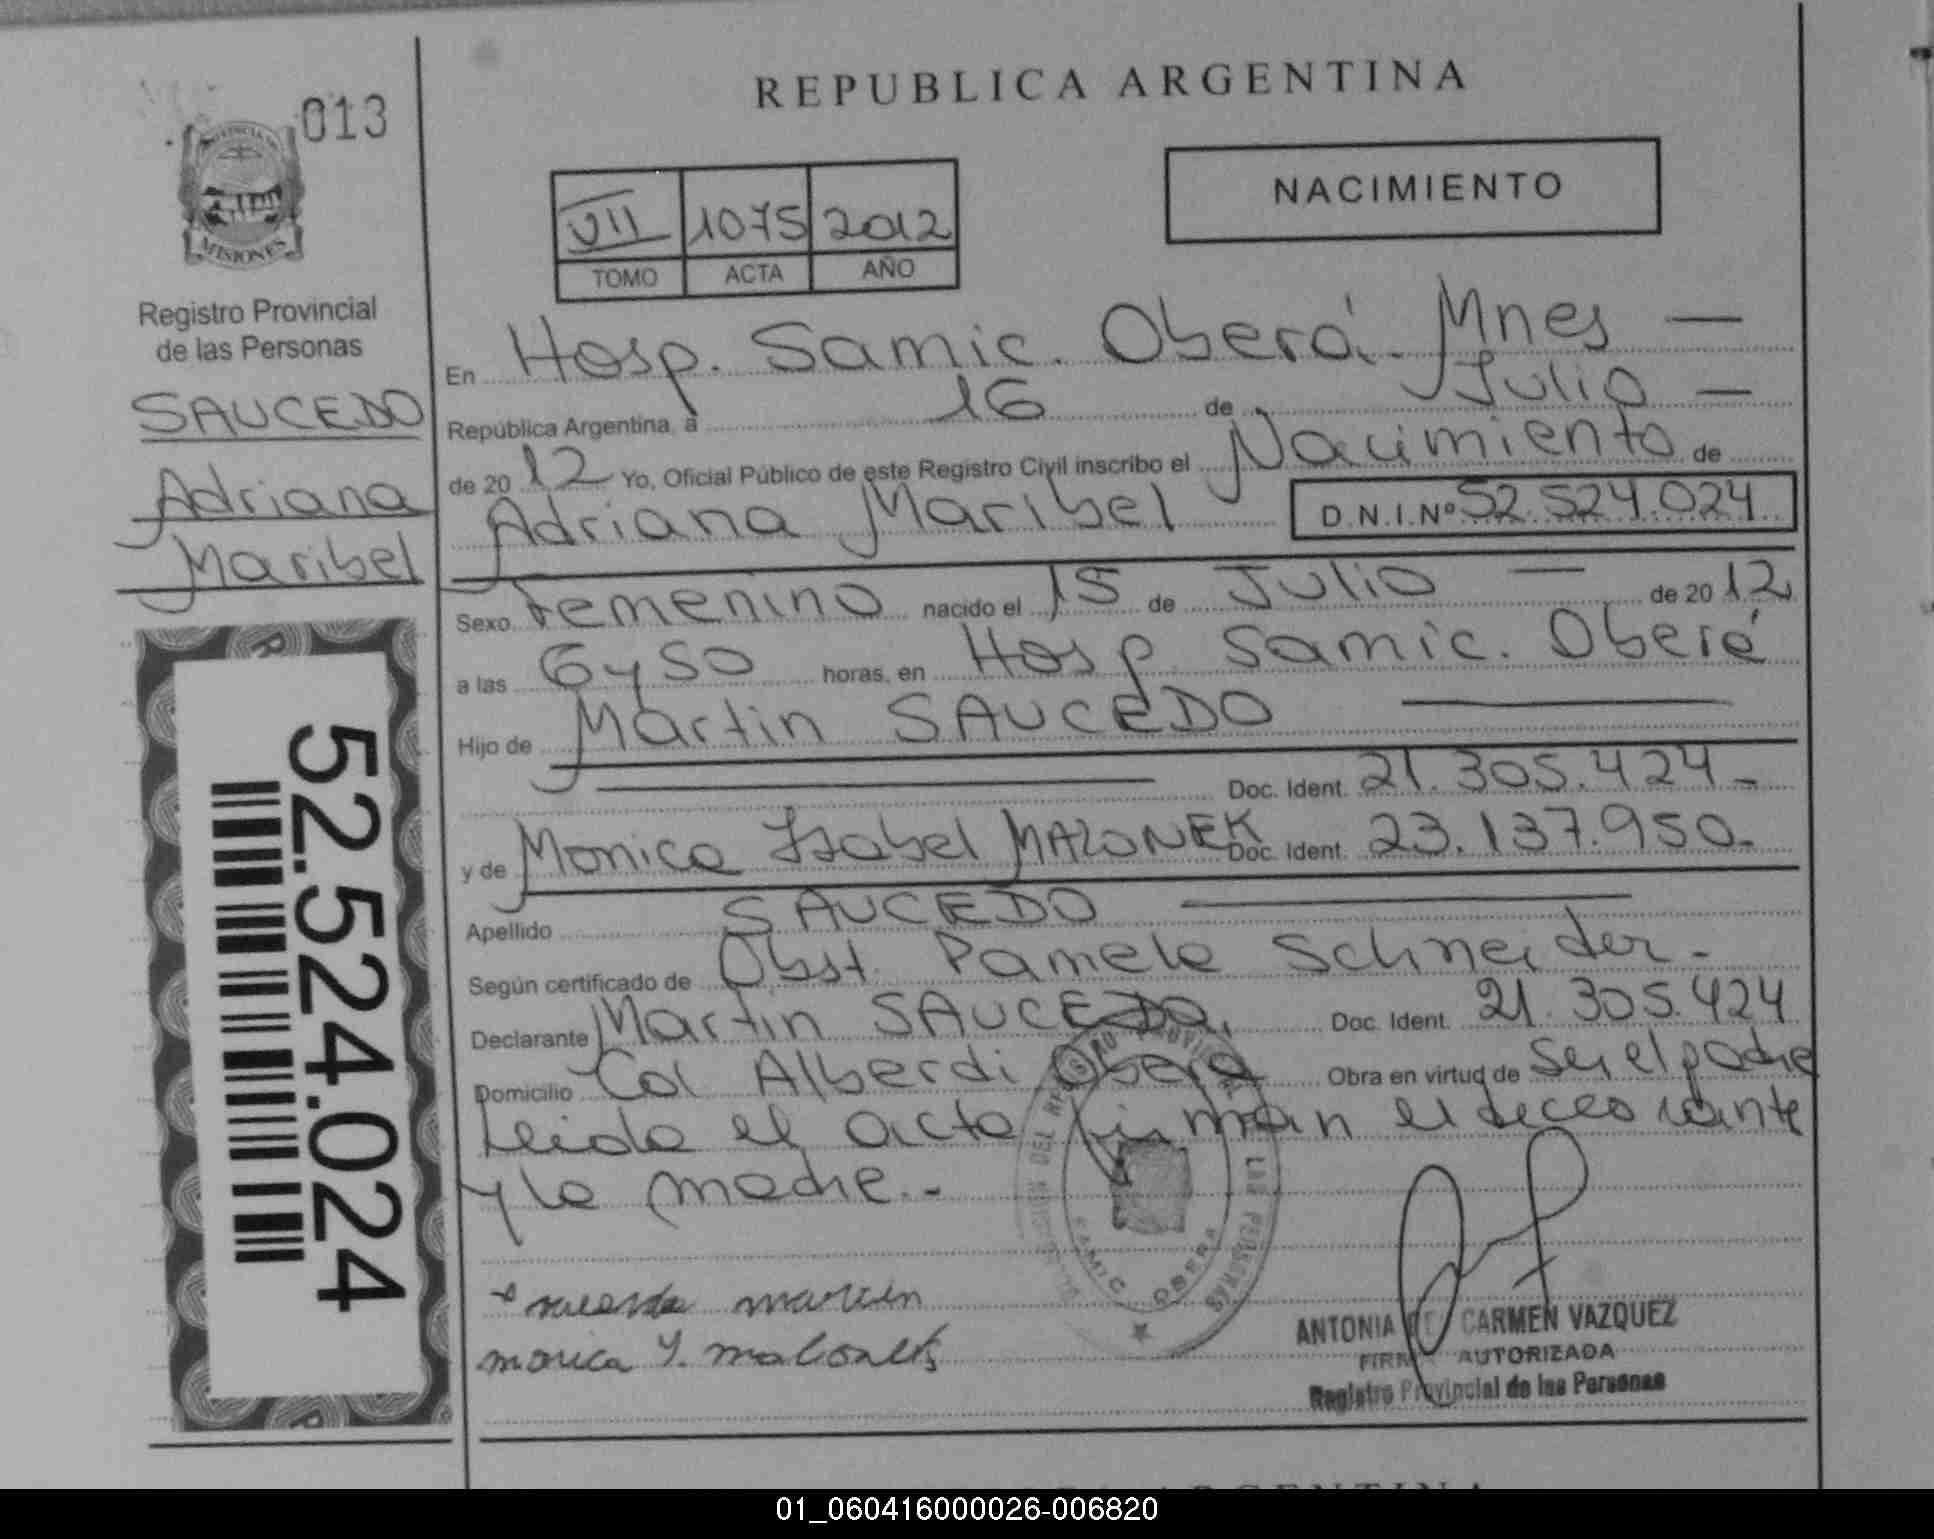 013
PROVINCIA DE
MISIONES
Registro Provincial
de las Personas
SAUCEDO
Adriana
Maribel
52.524.024
REPUBLICA ARGENTINA
NACIMIENTO
VII 1075 2012
TOMO ACTA AÑO
En Hosp. Samic. Oberá. Mnes —
República Argentina, a 16 de Julio —
de 20 12 Yo, Oficial Público de este Registro Civil inscribo el Nacimiento de
Adriana Maribel D.N.I.Nº 52.524.024
Sexo Femenino nacido el 15 de Julio — de 20 12
a las 6 y 50 horas, en Hosp. Samic. Oberá
Hijo de Martin SAUCEDO
Doc. Ident. 21.305.424-
y de Monica Isabel MALONEK Doc. Ident. 23.137.950-
Apellido SAUCEDO
Según certificado de Obst. Pamela Schneider.-
Declarante Martin SAUCEDO, Doc. Ident. 21.305.424
Domicilio Col Alberdi Oberá Obra en virtud de Ser el padre
Leida el acta firman el
y la madre.-
DEL REGISTRO PROVINCIAL DE LAS PERSONAS
SAMIC OBERA
martin
monica Y.
ANTONIA DEL CARMEN VAZQUEZ
FIRMA AUTORIZADA
Registro Provincial de las Personas
ARGENTINA
01_060416000026-006820